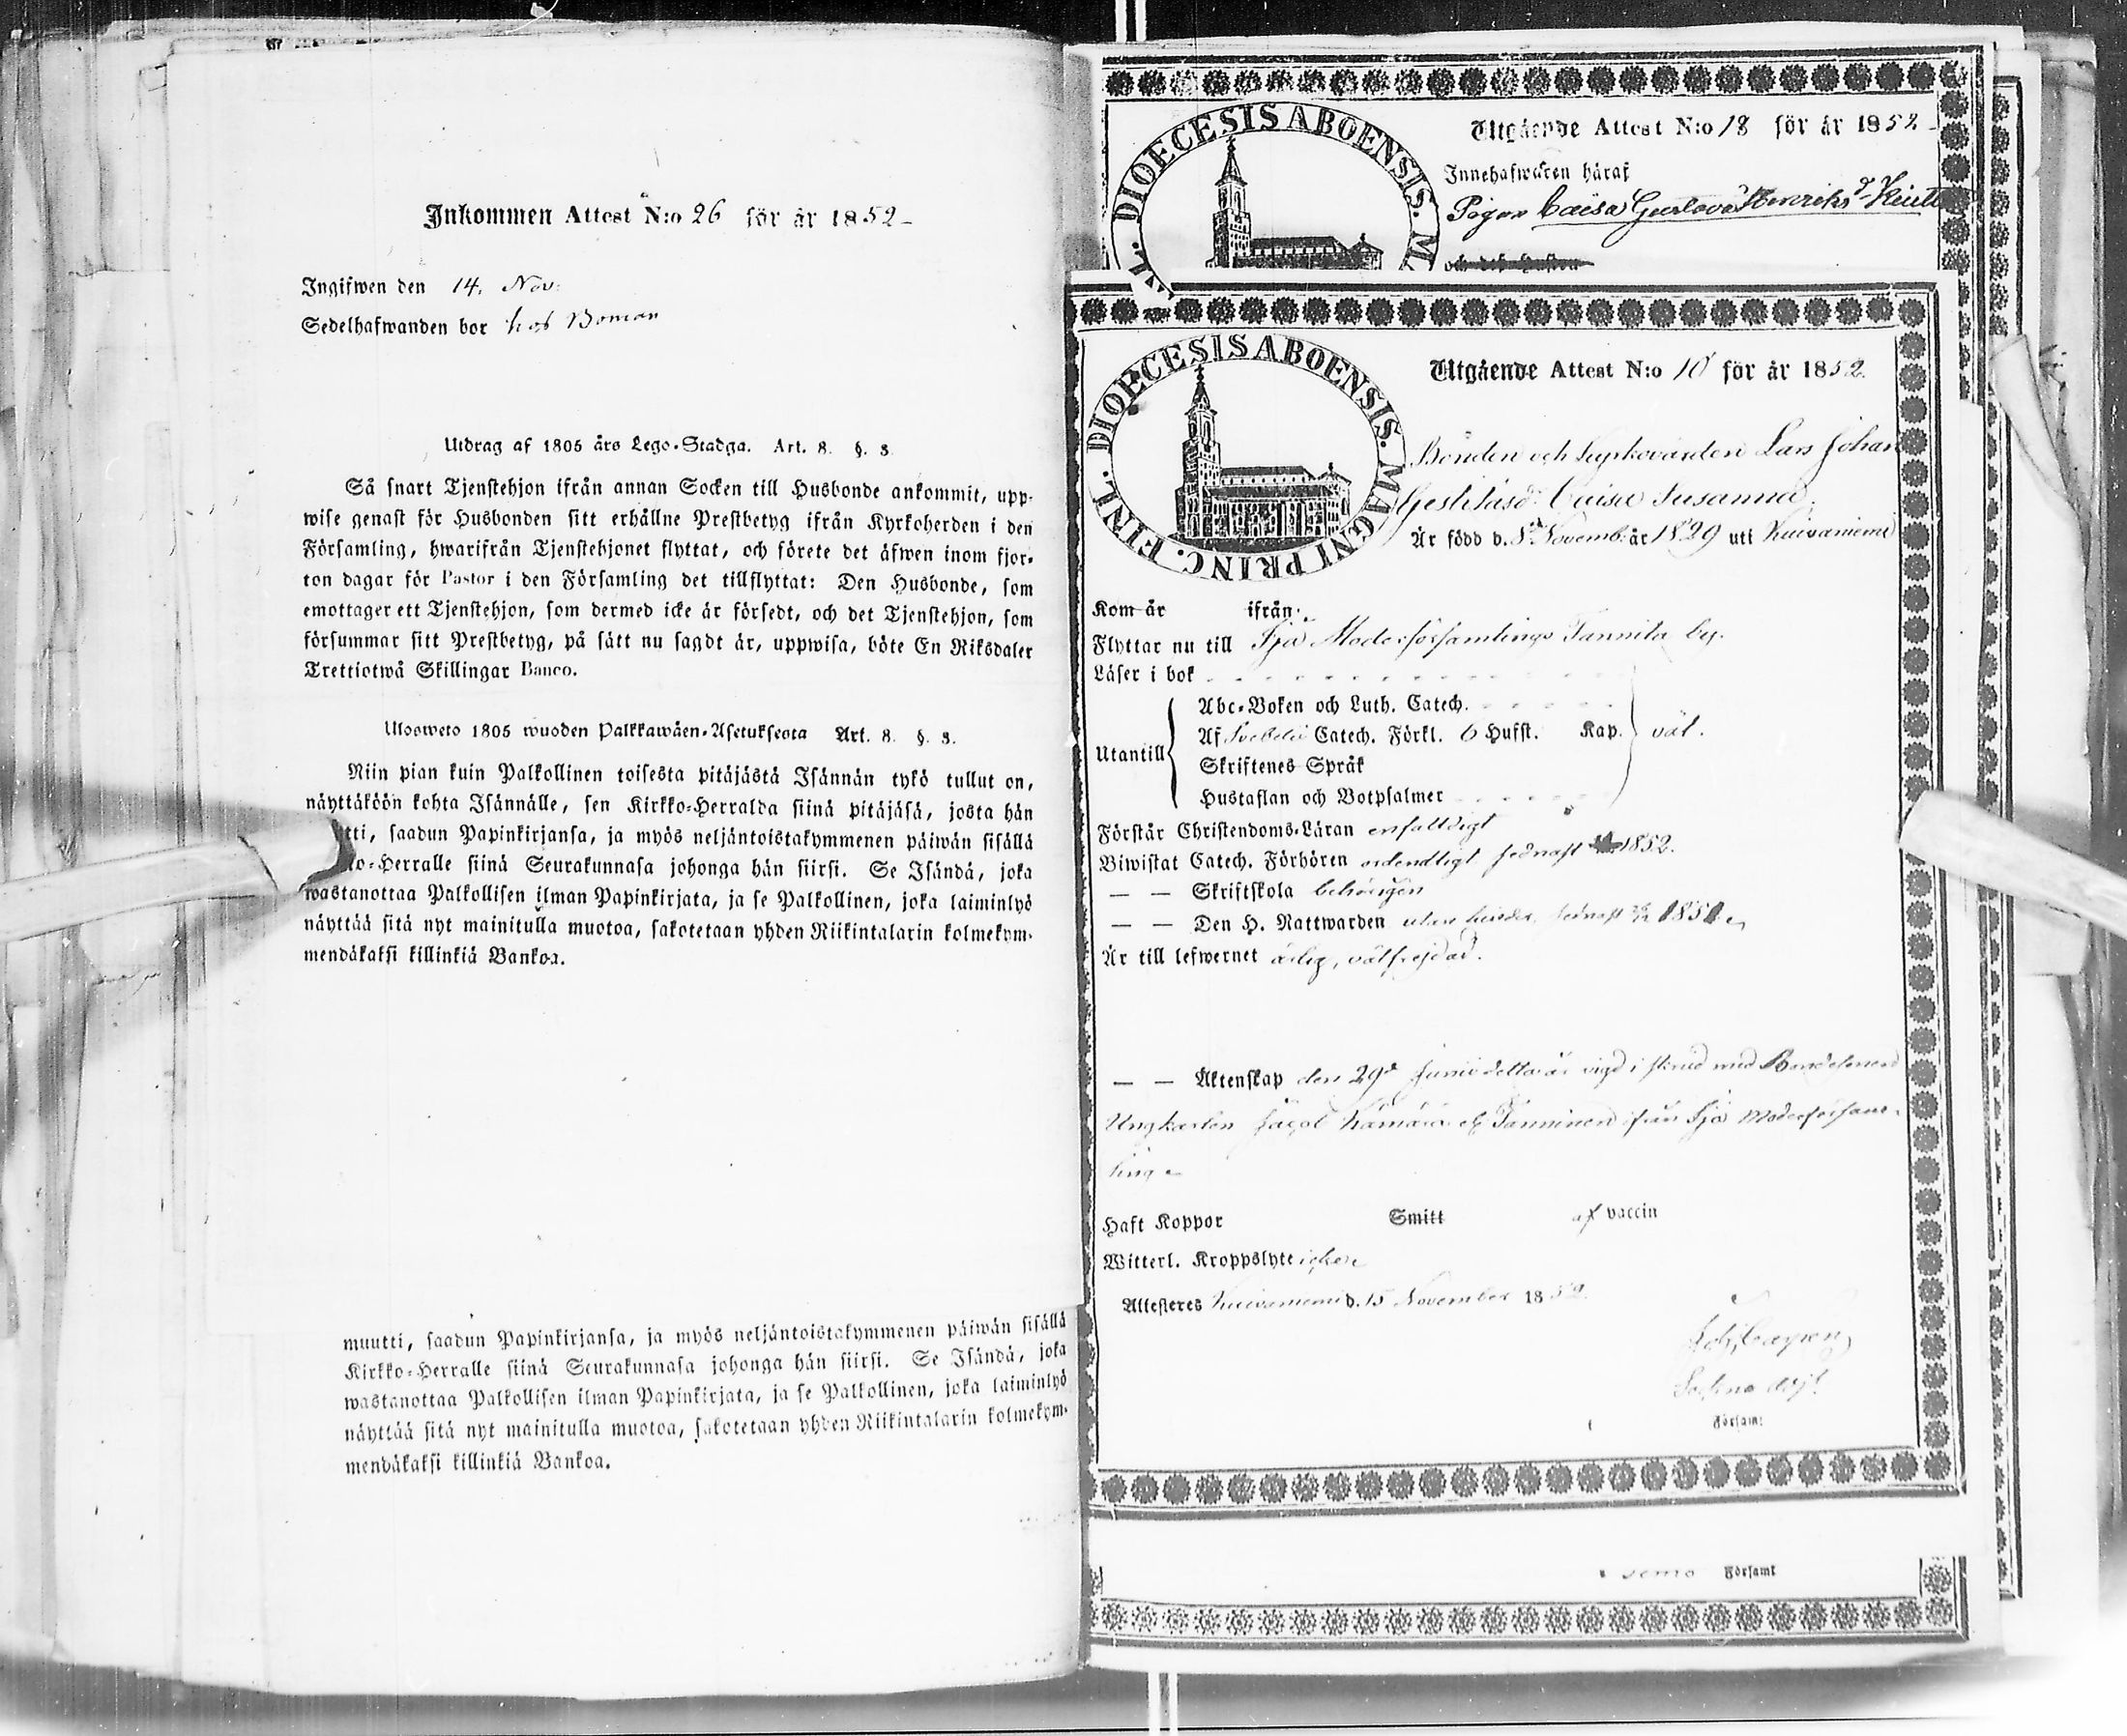 Inkommen Attest N:o 26 för år 1852
Ingifwen den 14. Nov.
Sedelhafwanden bor hos Boman
Utdrag af 1805 års Lego-Stadga. Art. 8. §. 3
Så snart Tjenstehjon ifrån annan Socken till Husbonde ankommit, upp-
wise genast för Husbonden sitt erhållne Prestbetyg ifrån Kyrkoherden i den
Församling, hwarifrån Tjenstehjonet flyttat, och förete det äfwen inom fjor-
ton dagar för Pastor i den Församling det tillflyttat: Den Husbonde, som
emottager ett Tjenstehjon, som dermed icke är försedt, och det Tjenstehjon, som
försummar sitt Prestbetyg, på sätt nu sagdt är, uppwisa, böte En Riksdaler
Trettiotwå Skillingar Banco.
Ulosweto 1805 wuoden Palkkawäen-Asetuksesta Art. 8. §. 3.
Niin pian kuin Palkollinen toisesta pitäjästä Isännän tykö tullut on,
näyttäköön kohta Isännälle, sen Kirkko-Herralda siinä pitäjäsä, josta hän
tti, saadun Papinkirjansa, ja myös neljäntoistakymmenen päiwän sisällä
ko-Herralle siinä Seurakunnasa johonga hän siirsi. Se Isändä, joka
wastanottaa Palkollisen ilman Papinkirjata, ja se Palkollinen, joka laiminlyö
näyttää sitä nyt mainitulla muotoa, sakotetaan yhden Riikintalarin kolmekym-
mendäkaksi killinkiä Bankoa.
muutti, saadun Papinkirjansa, ja myös neljäntoistakymmenen päiwän sisällä
Kirkko-Herralle siinä Seurakunnasa johonga hän siirsi. Se Isändä, joka
wastanottaa Palkollisen ilman Papinkirjata, ja se Palkollinen, joka laiminlyö
näyttää sitä nyt mainitulla muotoa, sakotetaan yhden Riikintalarin kolmekym-
mendäkaksi killinkiä Bankoa.
DIOECESIS ABOENSIS. MA
Utgående Attest N:o 18 för år 1852
Innehafwaren häraf
Pigan Caisa Gustava Henriksd:r
och dess hustru
DIOECESIS ABOENSIS. MAGNI PRINC. FINL.
Utgående Attest N:o 10 för år 1852.
Bonden och Lars Johan
Caisa Susanna
Är född d. 8 Novemb. år 1829 uti Kuivaniemi
Kom år ifrån
Flyttar nu till Ijo Moderförsamlings Tannila by.
Läser i bok
Abc-Boken och Luth. Catech.
Af Svebelii Catech. Förkl. 6 Hufst. Kap. väl.
Utantill
Skriftenes Språk
Hustaflan och Botpsalmer
Förstår Christendoms-Läran enfaldigt
Biwistat Catech. Förhören ordentligt sednast 1852.
— — Skriftskola behörigen
— — Den H. Nattwarden utan hinder, sednast 1851
Är till lefwernet ärlig, välfrejdad.
— — Äktenskap den 29de Junii detta år vigd i med Bondesonen
Ungkarlen Jacob Tanninen från Ijo Moderförsam-
ling
Haft Koppor Smitt af vaccin
Witterl. Kroppslyte icke
Attesteras Kuivaniemi d. 15 November 1852
Försam:
Församl